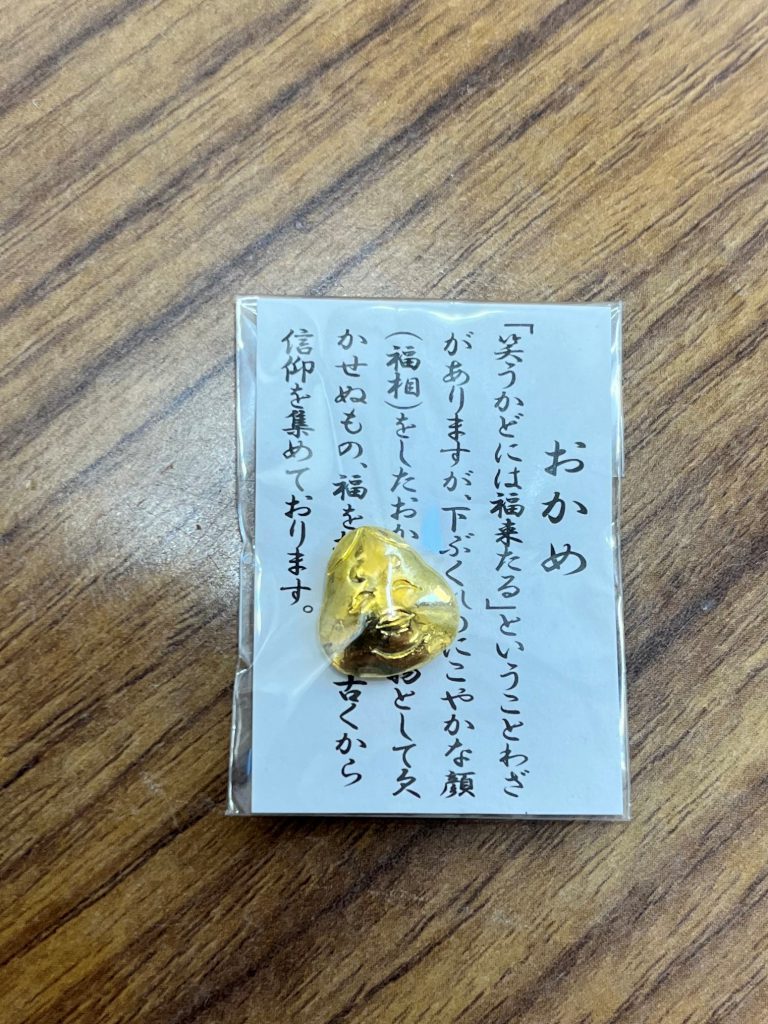 おかめ
「笑うかどには福来たる」ということわざ
がありますが、下ぶくれのにこやかな顔
(福相)をしたおか 物として欠
かせぬもの、福を 古くから
信仰を集めております。